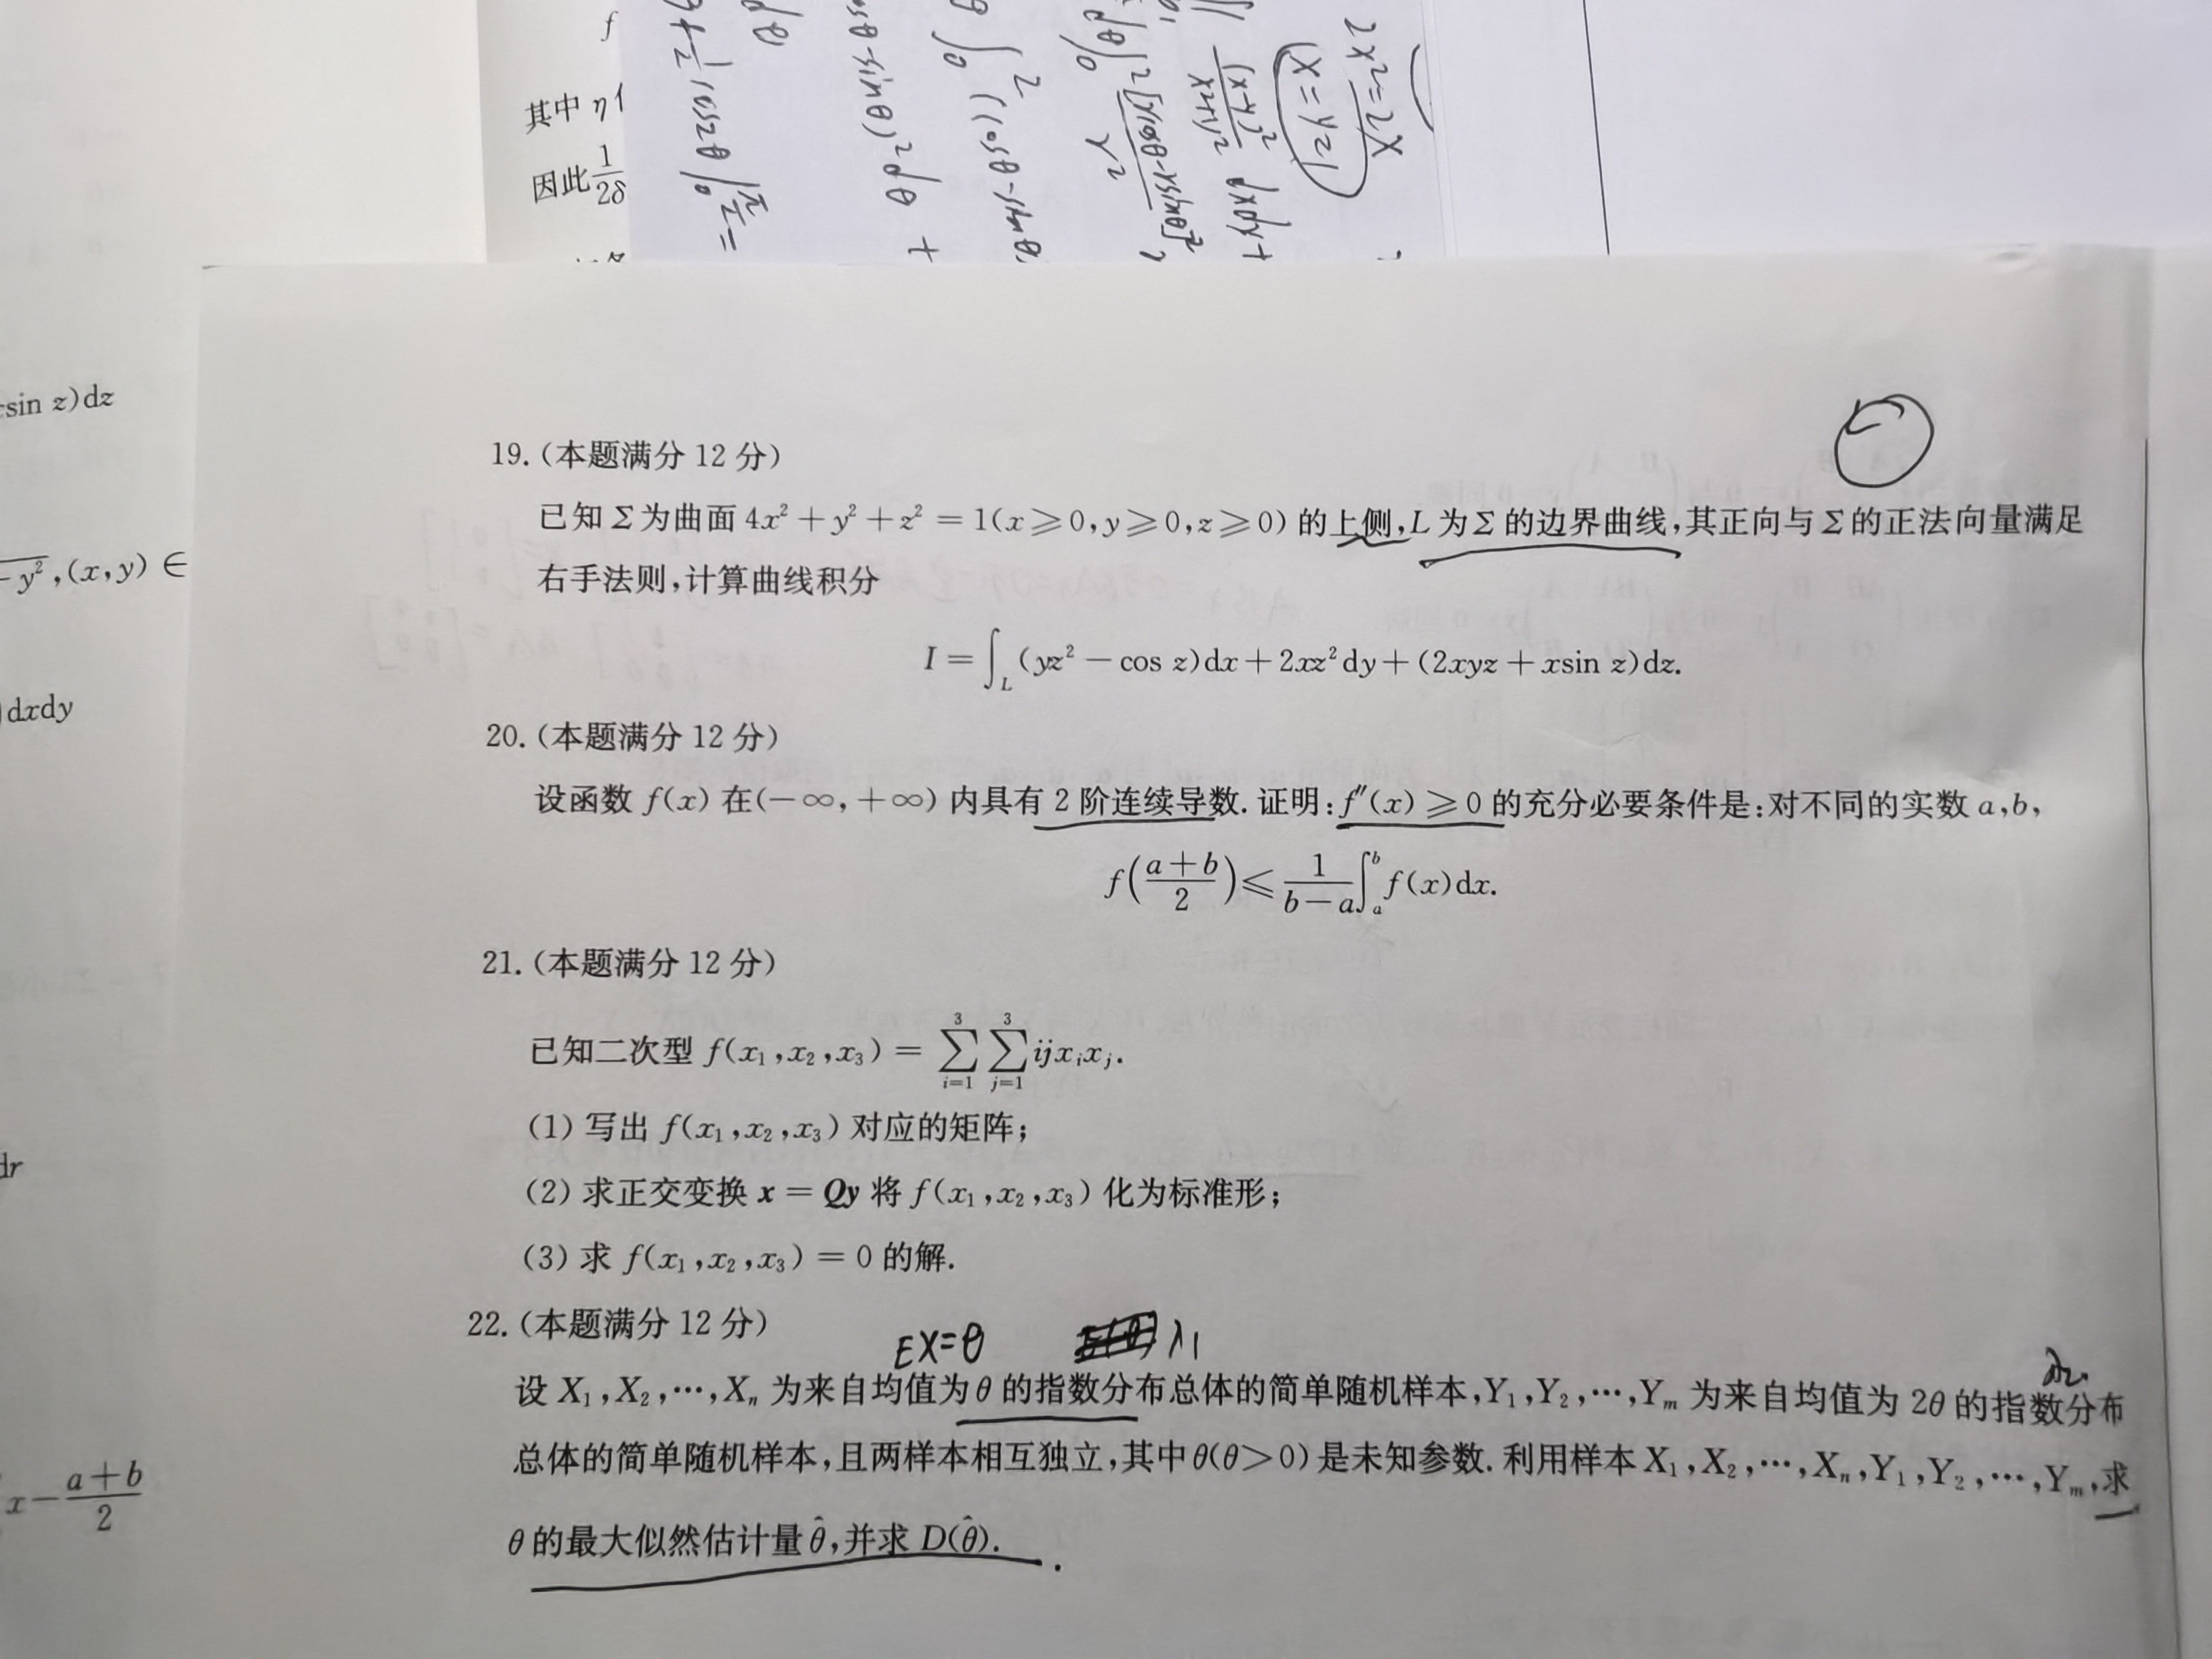 f
其中 η
因此 1/2δ
2x²=2x
(x=y=1
(x-y)²/x²+y² dxdy+
csin z)dz
-y²,(x,y) ∈
dxdy
dr
x-(a+b)/2
19.(本题满分 12 分)
已知 Σ 为曲面 4x²+y²+z²=1(x≥0,y≥0,z≥0) 的上侧,L 为 Σ 的边界曲线,其正向与 Σ 的正法向量满足
右手法则,计算曲线积分
I=∫_L (yz²-cos z)dx+2xz²dy+(2xyz+xsin z)dz.
20.(本题满分 12 分)
设函数 f(x) 在(-∞,+∞) 内具有 2 阶连续导数.证明:f″(x)≥0 的充分必要条件是:对不同的实数 a,b,
f((a+b)/2)≤1/(b-a)∫_a^b f(x)dx.
21.(本题满分 12 分)
已知二次型 f(x₁,x₂,x₃)=∑_{i=1}^{3}∑_{j=1}^{3}ijxᵢxⱼ.
(1) 写出 f(x₁,x₂,x₃) 对应的矩阵;
(2) 求正交变换 x=Qy 将 f(x₁,x₂,x₃) 化为标准形;
(3) 求 f(x₁,x₂,x₃)=0 的解.
22.(本题满分 12 分)
EX=θ λ₁
设 X₁,X₂,…,Xₙ 为来自均值为 θ 的指数分布总体的简单随机样本,Y₁,Y₂,…,Yₘ 为来自均值为 2θ 的指数分布
总体的简单随机样本,且两样本相互独立,其中 θ(θ>0) 是未知参数.利用样本 X₁,X₂,…,Xₙ,Y₁,Y₂,…,Yₘ,求
θ 的最大似然估计量 θ̂,并求 D(θ̂).